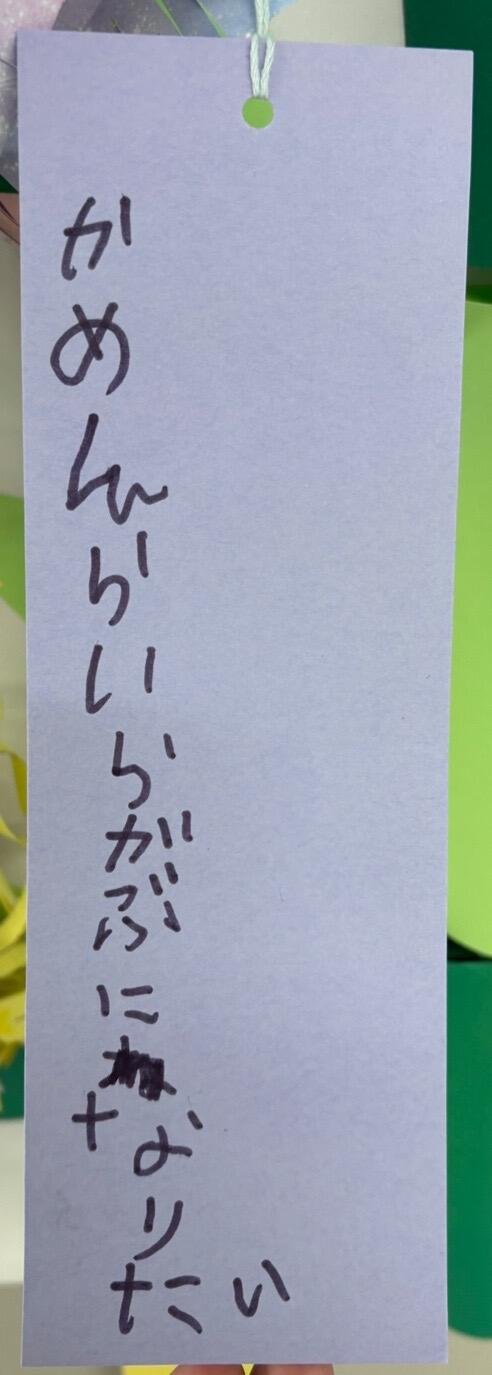 かめんらいらがぶになりたい